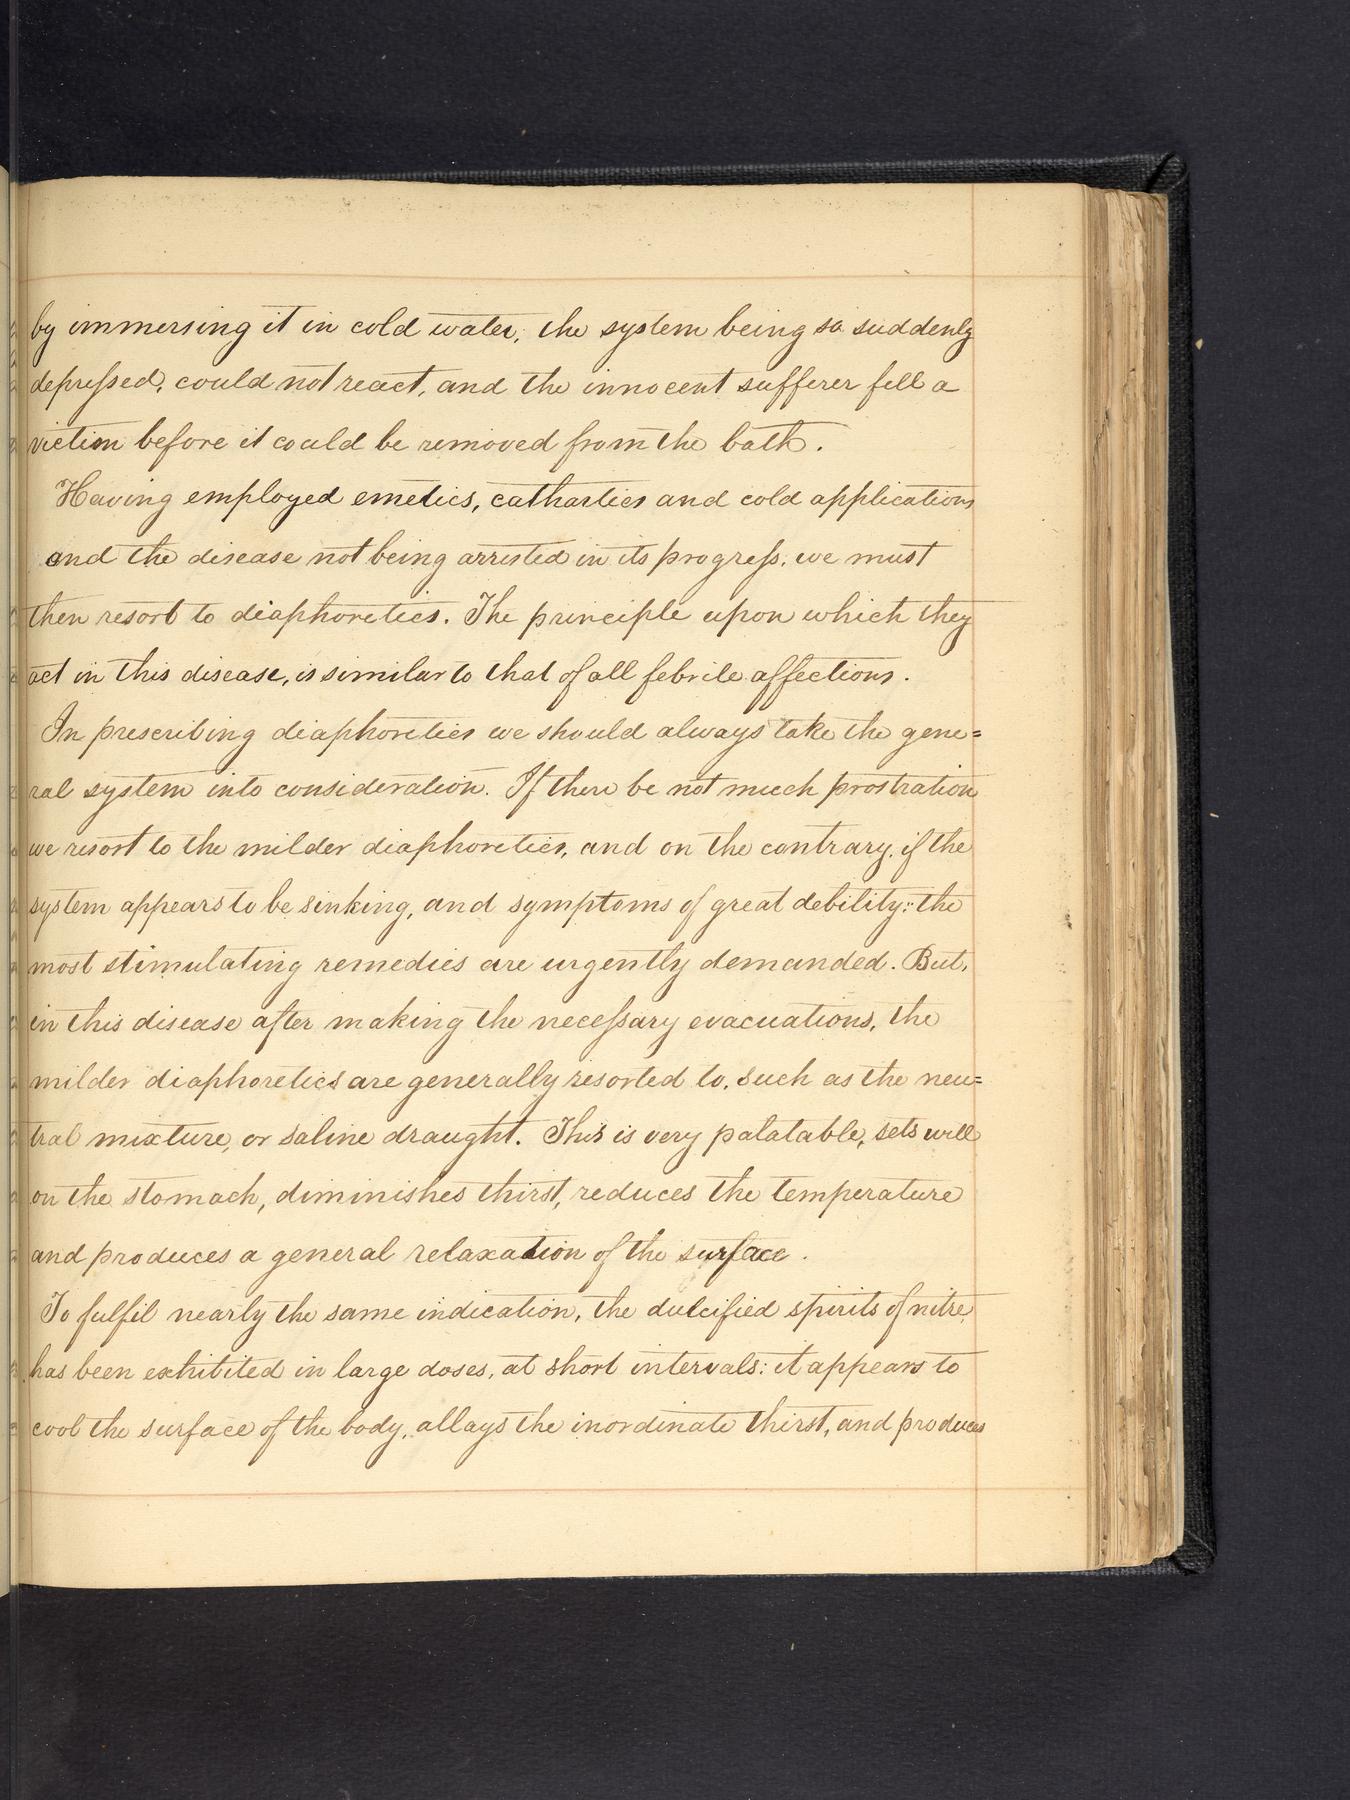 by immersing it in cold water, the system being so suddenly
depressed, could not react, and the innocent sufferer fell a
victim before it could be removed from the bath.
Having employed emetics, cathartics and cold applications
and the disease not being arrested in its progress, we must
then resort to diaphoretics. The principle upon which they
act in this disease, is similar to that of all febrile affections.
In prescribing diaphoretics we should always take the gene=
ral system into consideration. If there be not much prostration
we resort to the milder diaphoretics, and on the contrary, if the
system appears to be sinking, and symptoms of great debility: the
most stimulating remedies are urgently demanded. But,
in this disease after making the necessary evacuations, the
milder diaphoretics are generally resorted to, such as the neu=
tral mixture, or saline draught. This is very palatable, sets well
on the stomach, diminishes thirst, reduces the temperature
and produces a general relaxation of the surface.
To fulfil nearly the same indication, the dulcified spirits of nitre,
has been exhibited in large doses, at short intervals: it appears to
cool the surface of the body, allays the inordinate thirst, and produces